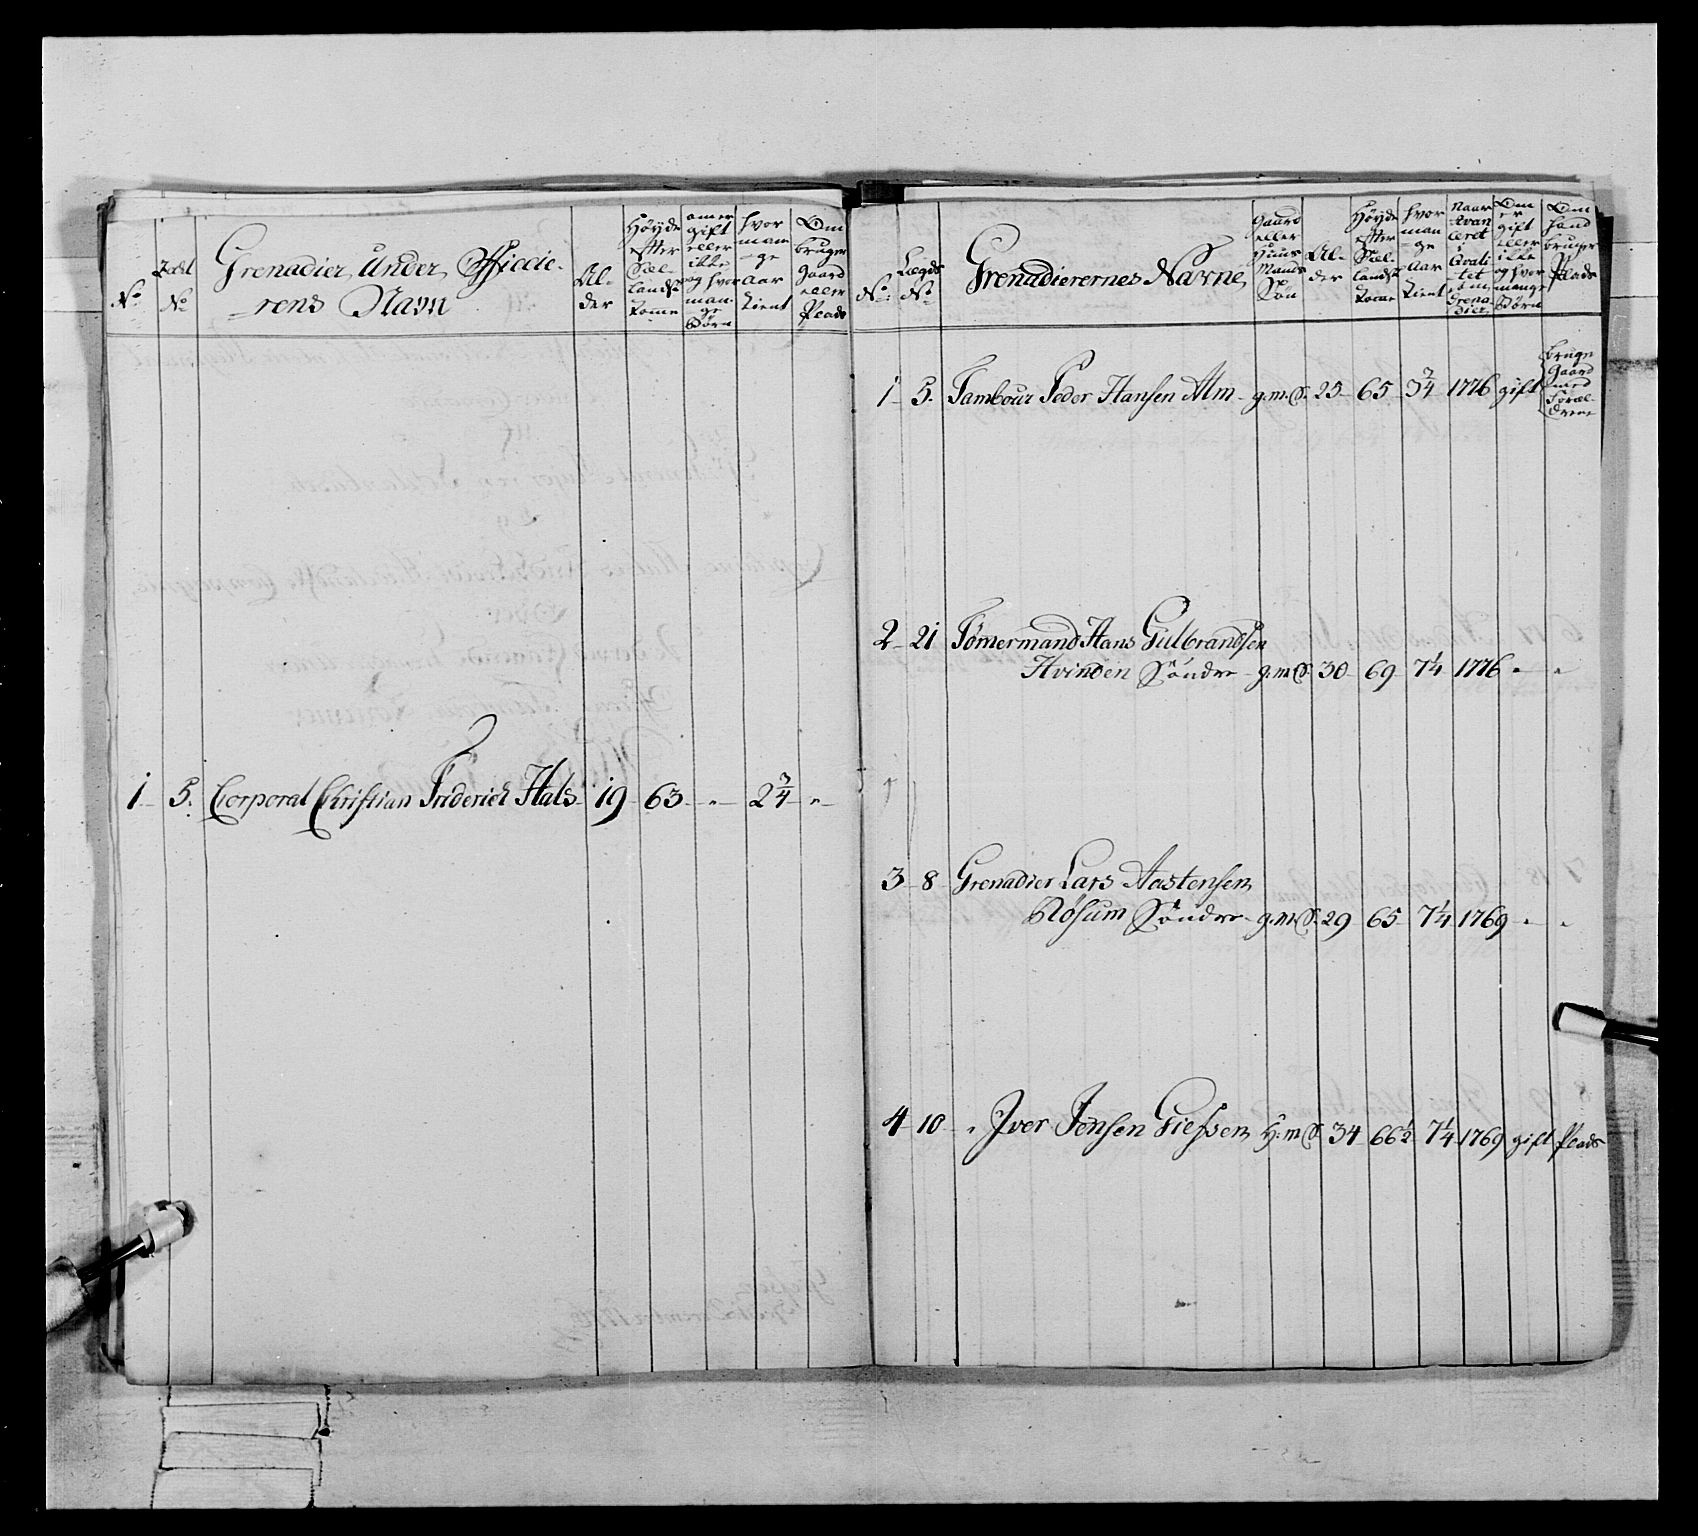 No
Zedl No
Grenadier Under Officie-
rens Navn
Al-
der
Höyde
efter
Siel-
landsk
Tomme
om er
gift
eller
ikke
og hvor
man-
ge
Börn
hvor
man-
ge
Aar
tient
Om
bruger
Gaard
eller
Plads
1 5. Corporal Christian Friderich Hals 19 63 " 2¾ "
No:
Lægds No
Grenadierernes Navne
Gaard
eller
Huus
Mands
Sön
Al-
der
Höyde
efter
Siel-
landsk
Tomme
hvor
man-
ge
Aar
tient
Naar
Avan-
ceret
i
Qvali-
tet
som
Grena-
dier
Om
er
gift
eller
ikke
og hvor
mange
Börn
Om
hand
bruger
Plads
1 5. Tambour Peder Hansen Alm g.m.S. 25 65 3¾ 1776 gift
bruger
Gaard
med
Foræl-
drene
2 21 Tømermand Hans Gulbrandsen
Hvinden Söndre g.m.S. 30 69 7¼ 1776 " "
3 8 Grenadier Lars Aastensen
Røsum Söndre g.m.S. 29 65 7¼ 1769 " "
4 10 " Iver Jensen Giefsen H.m.S. 34 66½ 7¼ 1769 gift Plads